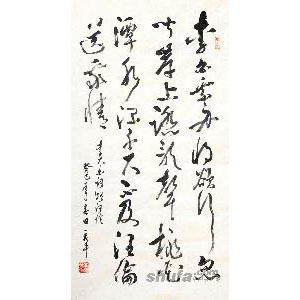 李白乘舟将欲行忽
闻岸上踏歌声桃花
潭水深千尺不及汪伦
送我情
李白诗赠汪伦
癸巳年春日